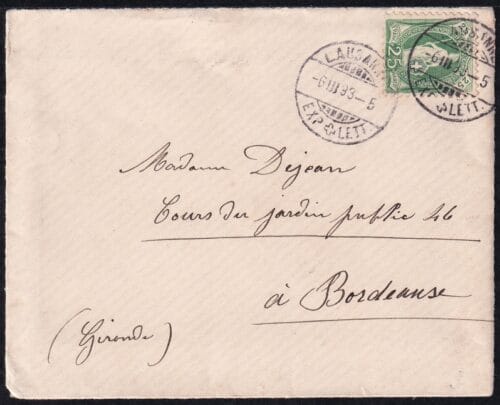 LAUSANNE
-6 III 93-5
EXP. LETT.
25
-6 III 93-5
LETT.
Madame Dejean
Cours du jardin public 46
à Bordeause
(Gironde)